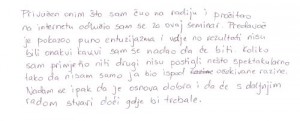 Privučen onim što sam čuo na radiju i pročitao
na internetu odlučio sam se za ovaj seminar. Predavač
je pokazao puno entuzijazma i volje no rezultati nisu
bili onakvi kakvi sam se nadao da će biti koliko
sam primjetio niti drugi nisu postigli nešto spektakularno
tako da nisam samo ja bio ispod razine očekivane razine.
Nadam se ipak da je osnova dobra i da će s daljnjim
radom stvari doći gdje bi trebale.